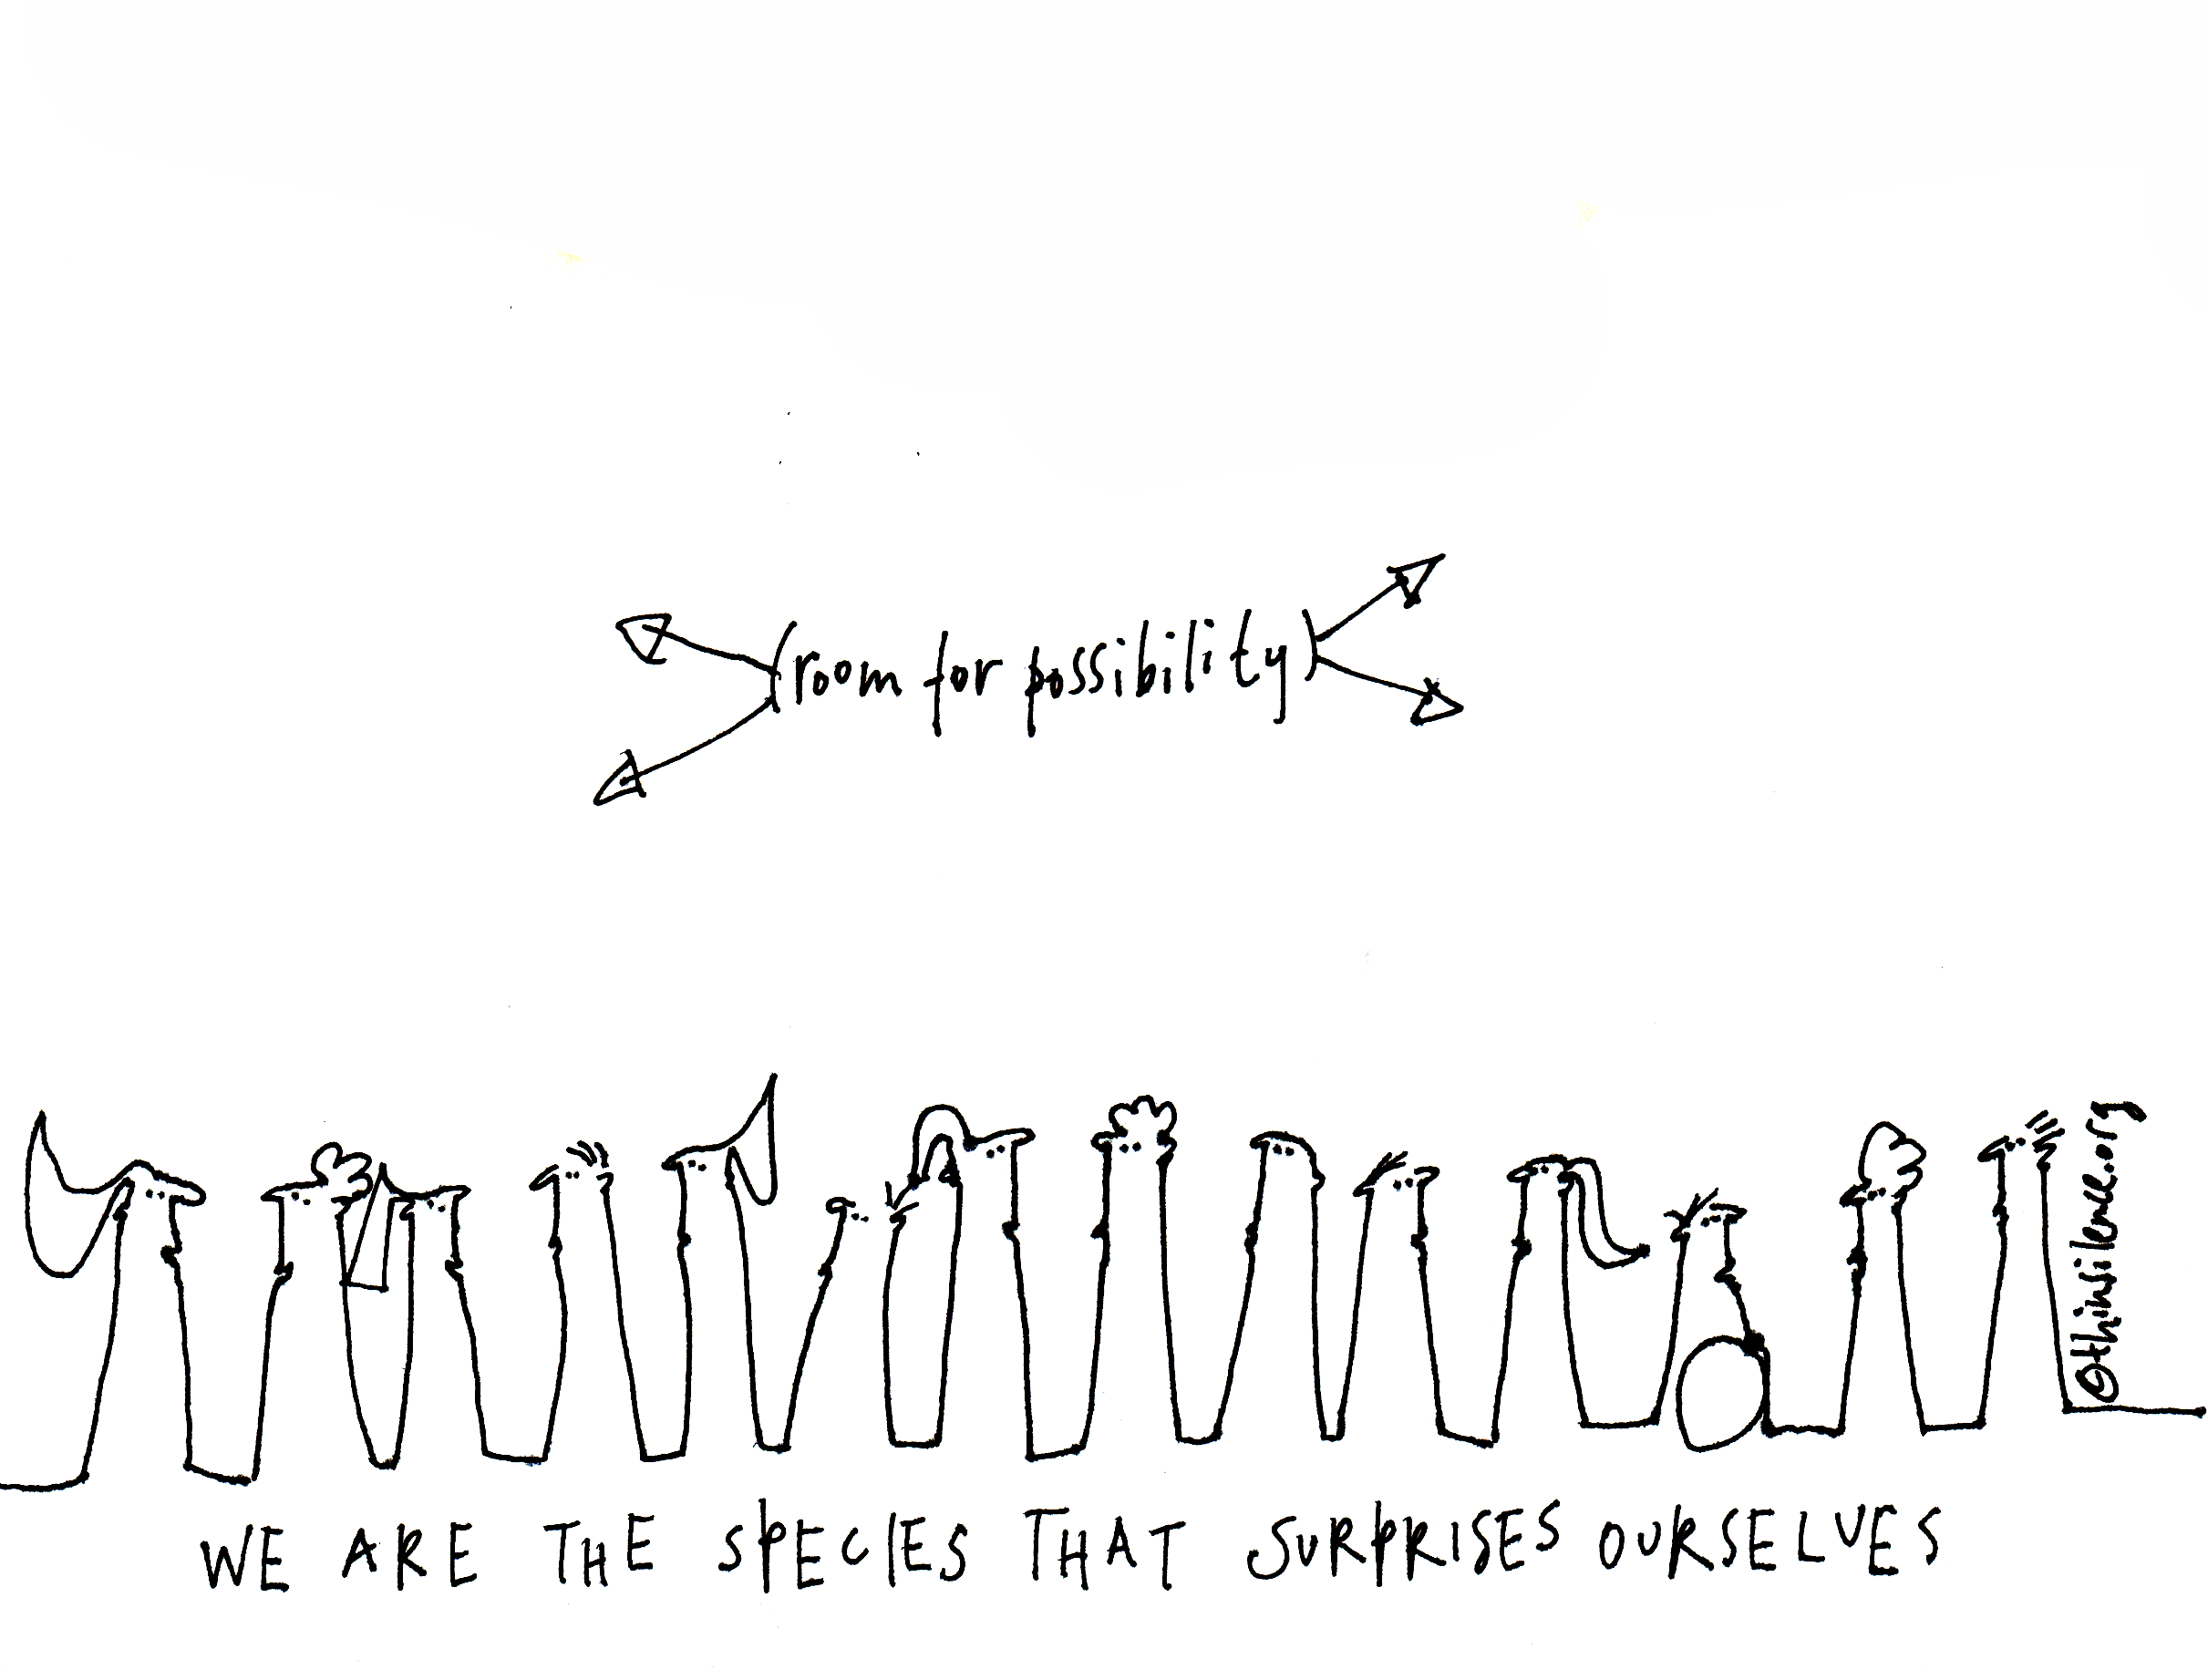 (room for possibility)
WE ARE THE SPECIES THAT SURPRISES OURSELVES
©thinsilence.org